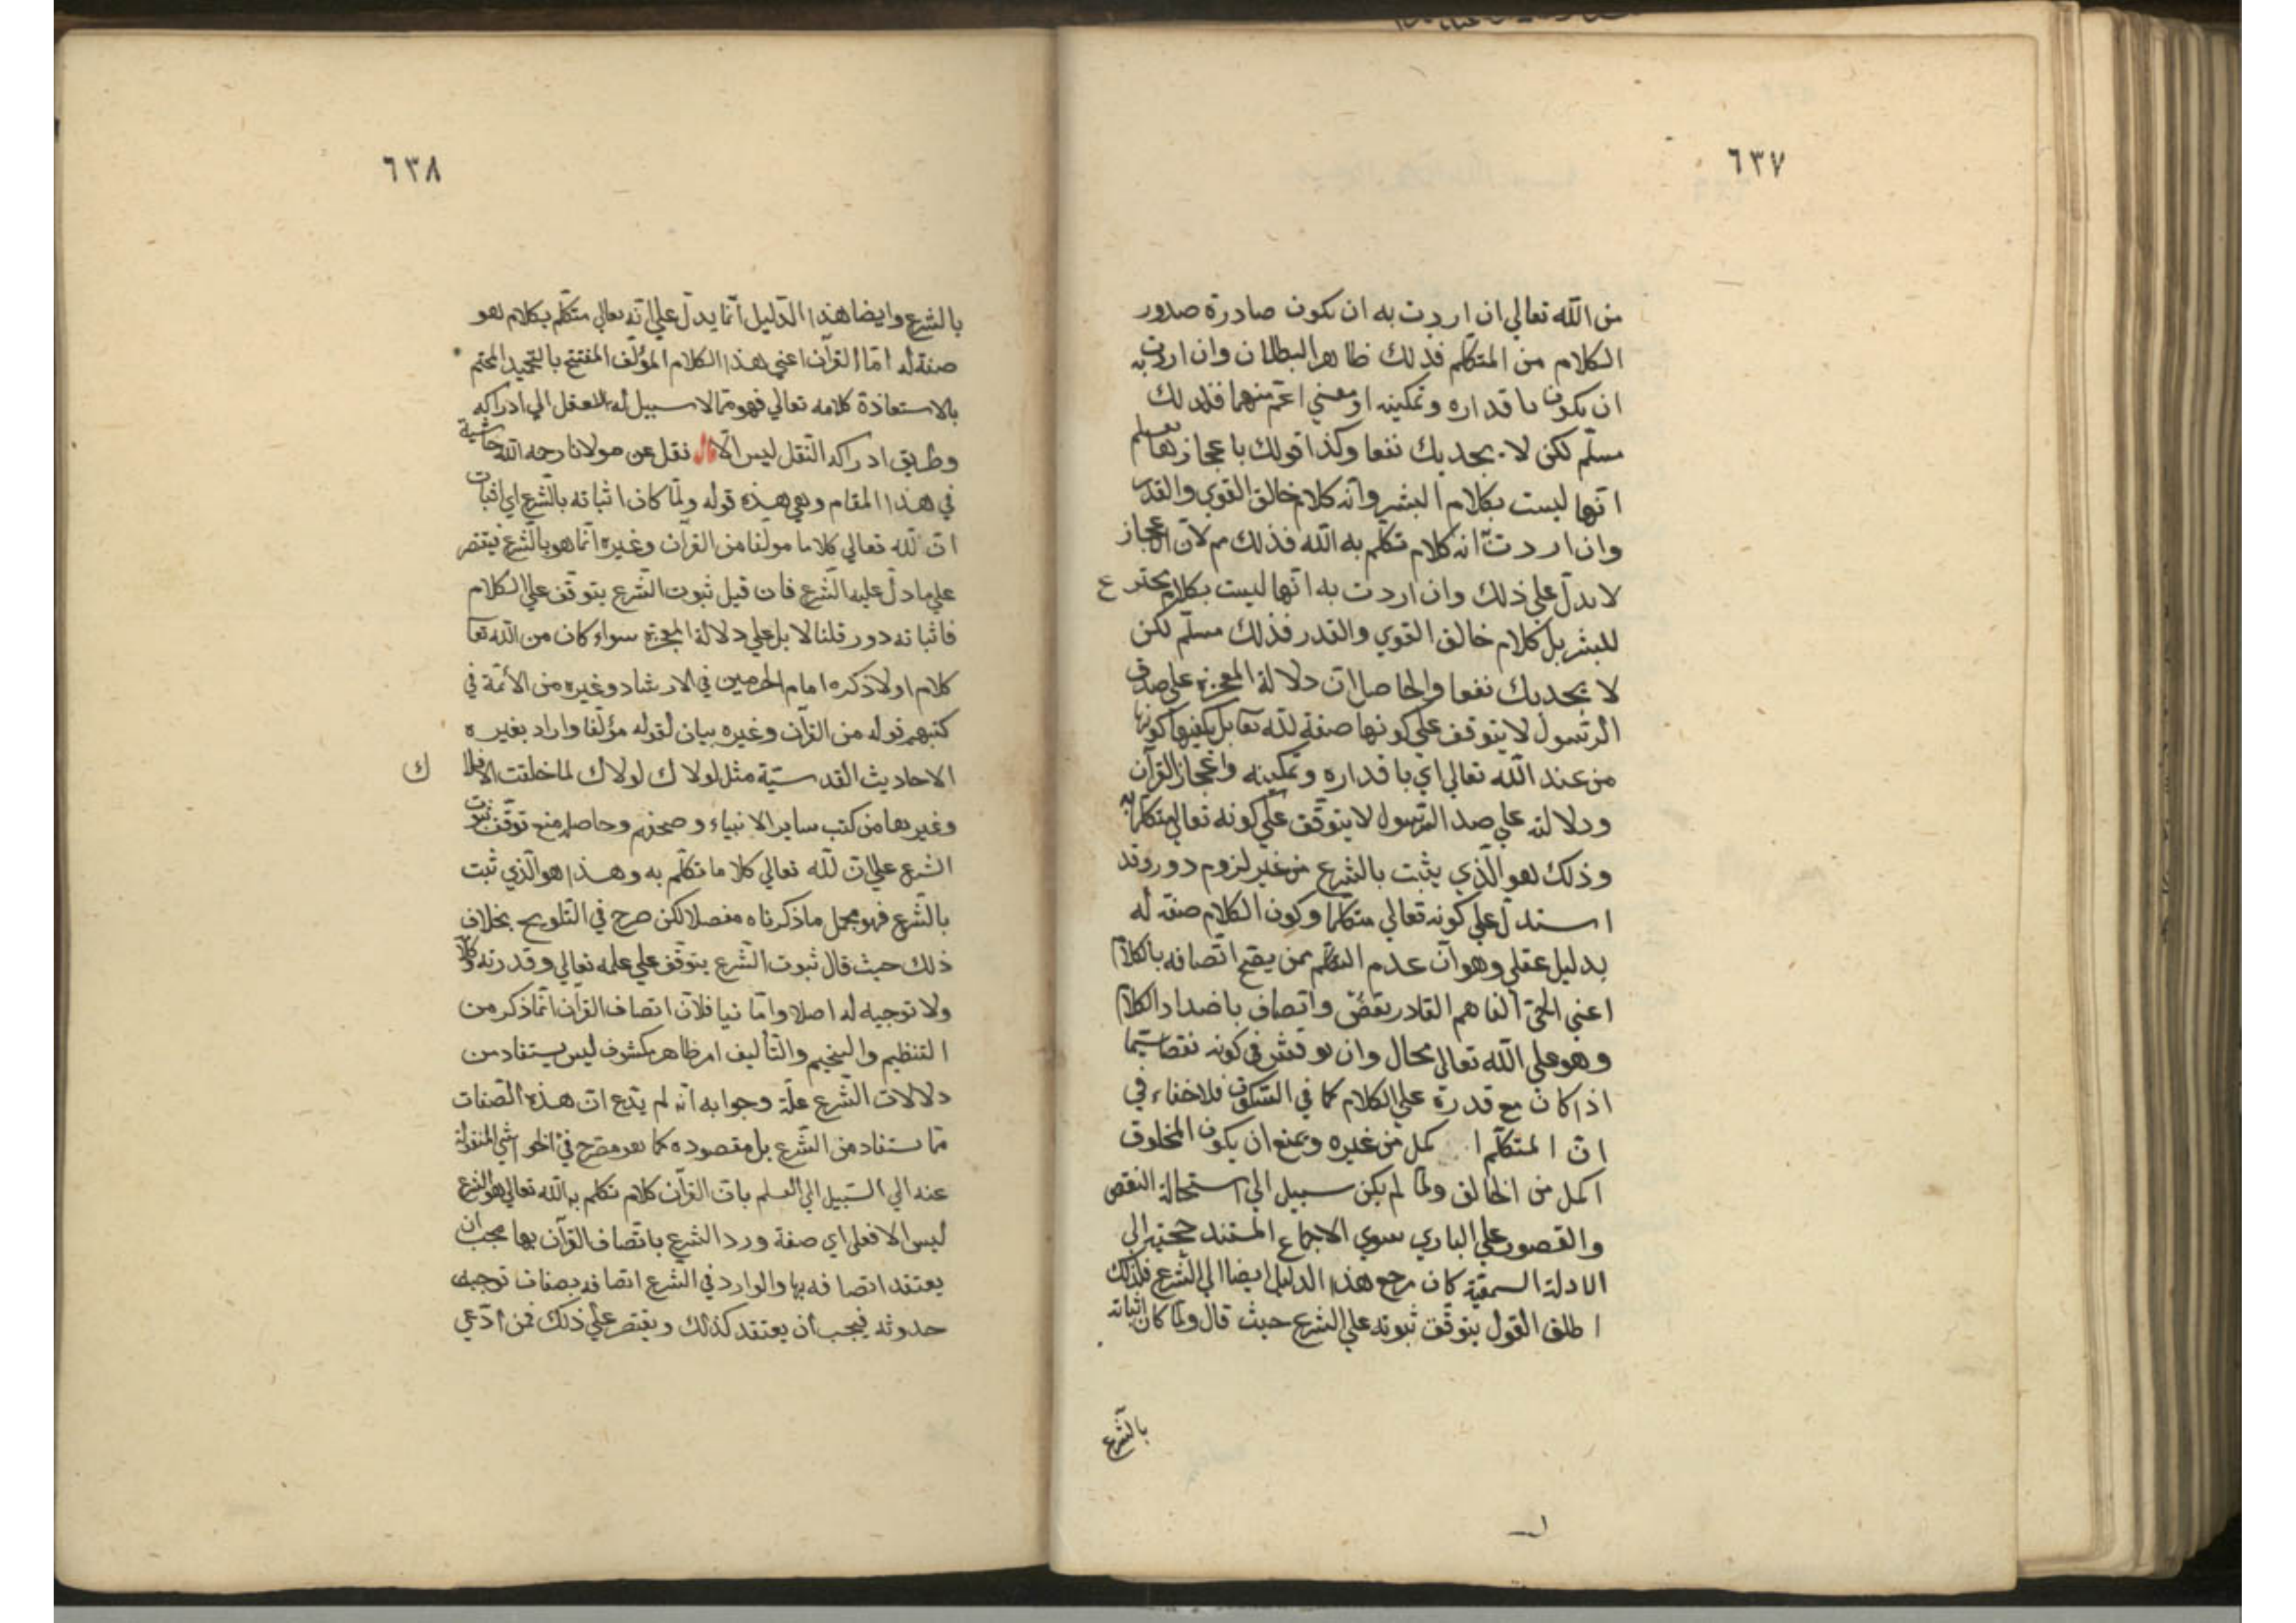 ٦٣٧
من الله تعالي ان اردت به ان تكون صادرة صدور
الكلام من المتكلم فذلك ظاهر البطلان وان اردت به
ان تكون باقداره وتمكينه او معني اعم منهما فذلك
مسلم لكن لا يجديك نفعا وكذا قولك باعجازها نعلم
انها ليست بكلام البشر وانه كلام خالق القوي والقدر
وان اردت انه كلام تكلم به الله فذلك مم لان الاعجاز
لا يدل علي ذلك وان اردت به انها ليست بكلام مخترع
للبشر بل كلام خالق القوي والقدر فذلك مسلم لكن
لا يجديك نفعا والحاصل ان دلالة المعجزة علي صدق
الرسول لا يتوقف علي كونها صفة لله تعا بل يكفيها كونها
من عند الله تعالي اي باقداره وتمكينه واعجاز القرآن
ودلالته علي صد الرسول لا يتوقف علي كونه تعالي متكلما به
وذلك هو الذي يثبت بالشرع من غير لزوم دور وقد
استدل علي كونه تعالي متكلما وكون الكلام صفة له
بدليل عقلي وهو ان عدم التكلم ممن يصح اتصافه بالكلام
اعني الحي الفاهم القادر نقص واتصاف باضداد الكلام
وهو علي الله تعالي محال وان نوقش في كونه نقصا سيما
اذا كان مع قدرة علي الكلام كما في السكوت فلا خفاء في
ان المتكلم اكمل من غيره ويمنع ان يكون المخلوق
اكمل من الخالق ولما لم يكن سبيل الي استحالة النقص
والقصور علي الباري سوي الاجماع المستند حجيته الي
الادلة السمعية كان مرجع هذا الدليل ايضا الي الشرع فلذلك
اطلق القول بتوقف ثبوته علي الشرع حيث قال ولما كان اثباته
بالشرع
٦٣٨
بالشرع وايضا هذا الدليل انما يدل علي انه تعالي متكلم بكلام هو
صفة له اما القرآن اعني هذا الكلام المؤلف المفتتح بالتحميد المختم
بالاستعاذة كلامه تعالي فهو مما لا سبيل له للعقل الي ادراكه
وطريق ادراكه النقل ليس الا قال نقل عن مولانا رحمه الله حاشية
في هذا المقام وهي هذه قوله ولما كان اثباته بالشرع اي اثبات
ان لله تعالي كلاما مولفا من القرآن وغيره انما هو بالشرع فيقتصر
علي ما دل عليه الشرع فان قيل ثبوت الشرع يتوقف علي الكلام
فاثباته دور قلنا لا بل علي دلالة المعجزة سواء كان من الله تعا
كلام او لا ذكره امام الحرمين في الارشاد وغيره من الائمة في
كتبهم قوله من القرآن وغيره بيان لقوله مؤلفا واراد بغيره
الاحاديث القدسية مثل لولاك لولاك لما خلقت الافلاك
وغيرها من كتب ساير الانبياء وصحفهم وحاصله منع توقف ثبوت
الشرع علي ان لله تعالي كلاما تكلم به وهذا هو الذي ثبت
بالشرع فهو مجمل ما ذكرناه مفصلا لكن صرح في التلويح بخلاف
ذلك حيث قال ثبوت الشرع يتوقف علي علمه تعالي وقدرته وكلامه
ولا توجيه له اصلا واما نيا فلان اتصاف القرآن انما ذكر من
التنظيم والتنجيم والتأليف امر ظاهر مكشوف ليس يستفاد من
دلالات الشرع علة وجوابه انه لم يدع ان هذه الصفات
مما يستفاد من الشرع بل مقصوده كما هو مصرح في الحواشي المنقولة
عنه الي السبيل الي العلم بان القرآن كلام تكلم به الله تعالي هو الشرع
ليس الا فعلي اي صفة ورد الشرع باتصاف القرآن بها يجب ان
يعتقد اتصافه بها والوارد في الشرع اتصافه بصفات توجب
حدوثه فيجب ان يعتقد كذلك ويقتصر علي ذلك فمن ادعي